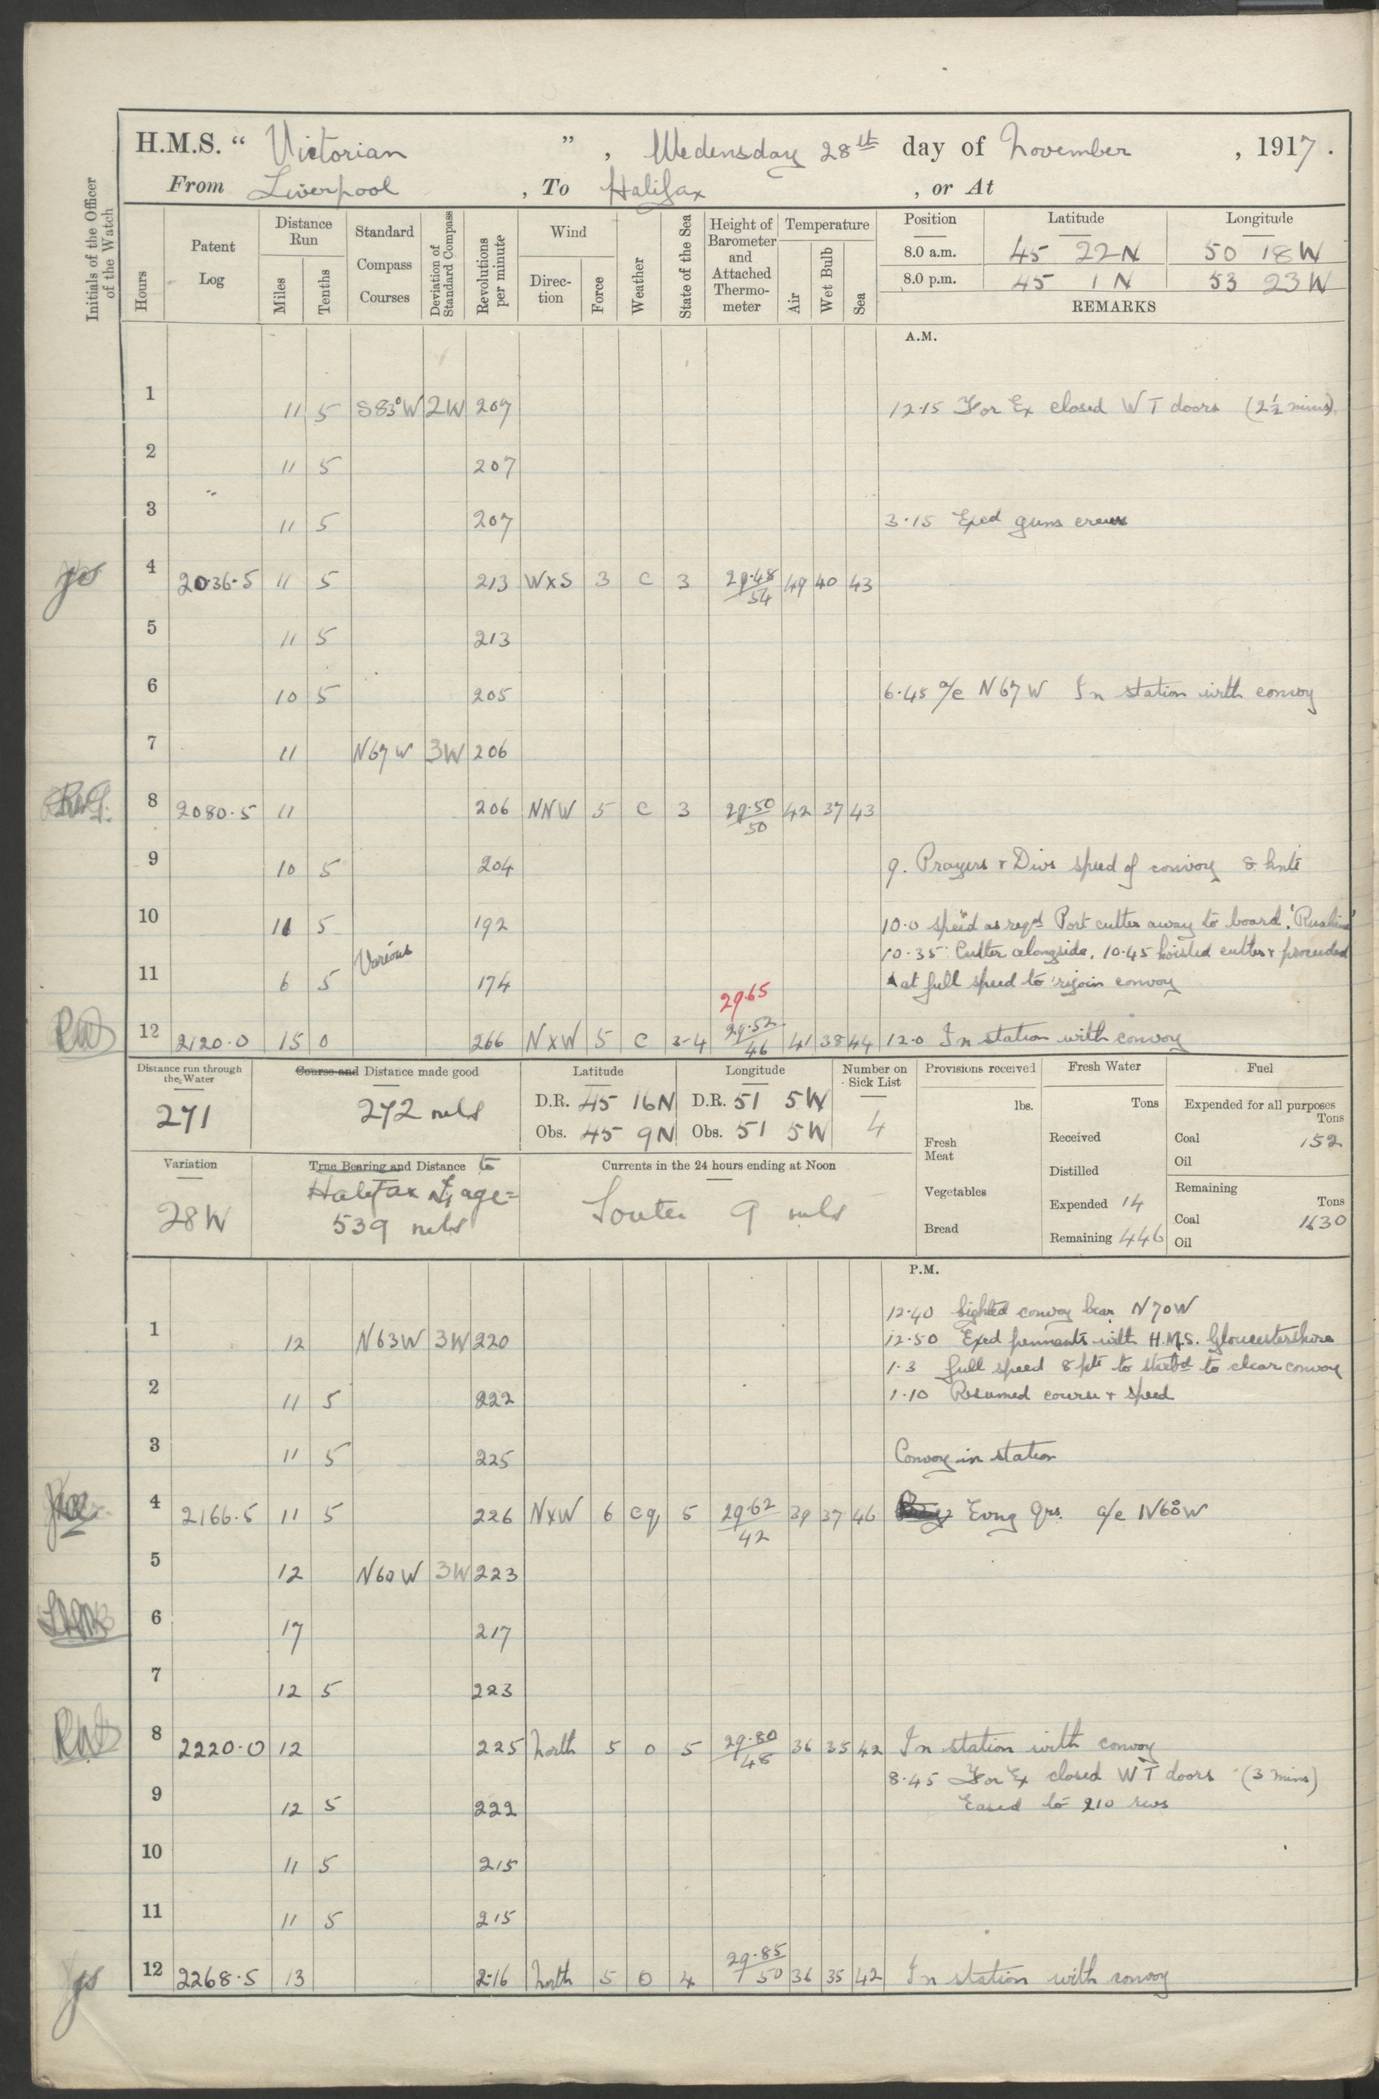 H.M.S. “ Victorian ” , Wedensday 28th day of November , 1917 .
From Liverpool , To Halifax , or At
Initials of the Officer of the Watch
Hours
Patent Log
Distance Run
Miles
Tenths
Standard Compass Courses
Deviation of Standard Compass
Revolutions per minute
Wind
Direction
Force
Weather
State of the Sea
Height of Barometer and Attached Thermometer
Temperature
Air
Wet Bulb
Sea
Position Latitude Longitude
8.0 a.m. 45 22 N 50 18 W
8.0 p.m. 45 1 N 53 23 W
REMARKS
A.M.
1 11 5 S 83° W 2W 207 12.15 For Ex closed W T doors (2½ mins)
2 11 5 207
3 11 5 207 3.15 Exed guns crews
4 2036.5 11 5 213 WxS 3 c 3 29.48 54 49 40 43
5 11 5 213
6 10 5 205 6.45 a/c N 67 W In station with convoy
7 11 N 67 W 3W 206
8 2080.5 11 206 NNW 5 c 3 29.50 50 42 37 43
9 10 5 204 9. Prayers + Divs speed of convoy 8 knts
10 11 5 192 10.0 speed as reqd Port cutter away to board
10.35 Cutter alongside. 10.45 hoisted cutter + proceeded
11 6 5 Various 174 at full speed to rejoin convoy
29.65
12 2120.0 15 0 266 NxW 5 c 3-4 29.52 46 41 38 44 12.0 In station with convoy
Distance run through the Water
271
Course and Distance made good
272 mls
Latitude Longitude
D.R. 45 16 N D.R. 51 5 W
Obs. 45 9 N Obs. 51 5 W
Number on Sick List
4
Provisions received
lbs.
Fresh Meat
Vegetables
Bread
Fresh Water
Tons
Received
Distilled
Expended 14
Remaining 446
Fuel
Expended for all purposes
Tons
Coal 152
Oil
Remaining
Tons
Coal 1630
Oil
Variation
28 W
True Bearing and Distance to
Halifax
539 mls
Currents in the 24 hours ending at Noon
9 mls
P.M.
12.40 Sighted convoy bear N 70 W
1 12 N 63 W 3W 220 12.50 Exed pennants with H.M.S. Gloucestershire
1.3 full speed 8 pts to starbd to clear convoy
2 11 5 222 1.10 Resumed course + speed
3 11 5 225 Convoy in station
4 2166.5 11 5 226 NxW 6 cq 5 29.62 42 39 37 46 Evng Qrs. a/c N 60° W
5 12 N 60 W 3W 223
6 17 217
7 12 5 223
8 2220.0 12 225 North 5 o 5 29.80 48 36 35 42 In station with convoy
8.45 For Ex closed W T doors (3 mins)
9 12 5 222 Eased to 210 revs
10 11 5 215
11 11 5 215
12 2268.5 13 216 North 5 o 4 29.85 50 36 35 42 In station with convoy